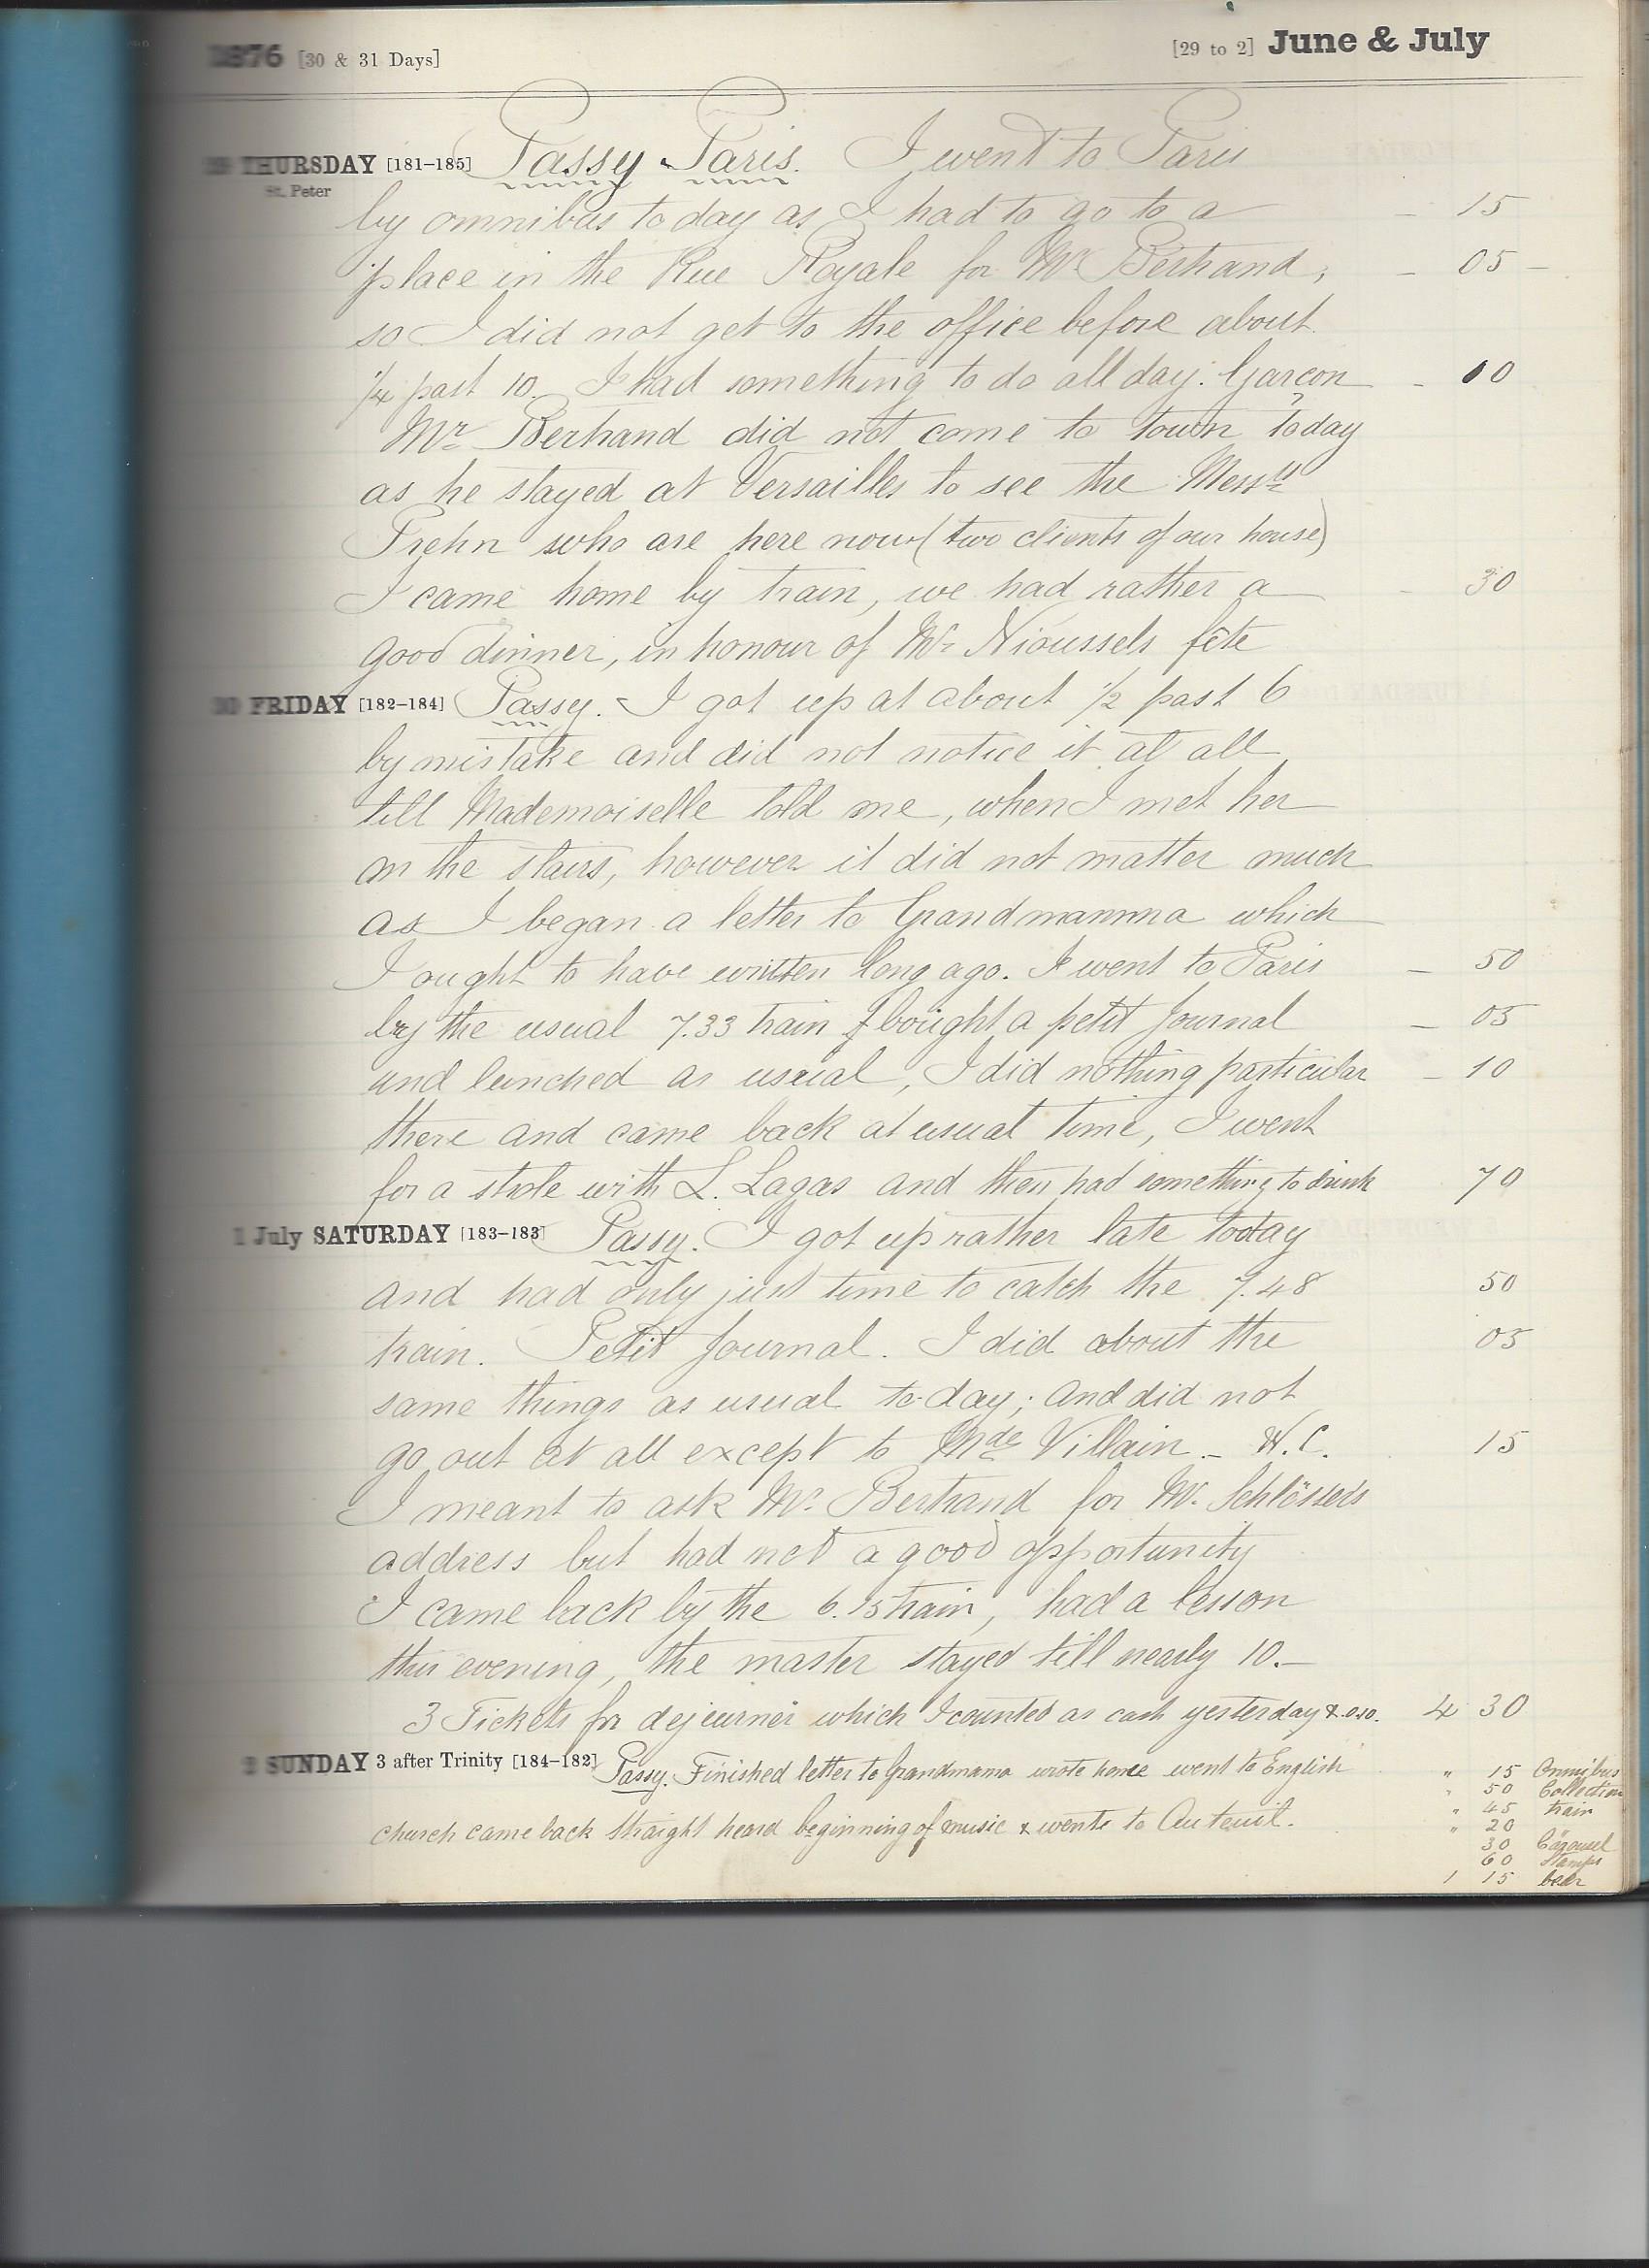 1876 [30 & 31 Days] [29 to 2] June & July
29 THURSDAY [181–185] Passy – Paris. I went to Paris
St. Peter
by omnibus to day as I had to go to a – 15
place in the Rue Royale for Mr Bertrand, – 05 –
so I did not get to the office before about
1/4 past 10. I had something to do all day. Garçon – 10
Mr Bertrand did not come to town today
as he stayed at Versailles to see the Messrs
Frehn who are here now (two clients of our house)
I came home by train, we had rather a – 30
good dinner, in honour of Mr Nioussels fête
30 FRIDAY [182–184] Passy. I got up at about 1/2 past 6
by mistake and did not notice it at all
till Mademoiselle told me, when I met her
on the stairs, however it did not matter much
as I began a letter to Grandmamma which
I ought to have written long ago. I went to Paris – 50
by the usual 7.33 train & bought a petit Journal – 05
and lunched as usual, I did nothing particular – 10
there and came back at usual time, I went
for a strole with L. Lagas and then had something to drink 70
1 July SATURDAY [183–183] Passy. I got up rather late today
and had only just time to catch the 7.48 50
train. Petit Journal. I did about the 05
same things as usual to-day; and did not
go out at all except to Mde Villain – W.C. 15
I meant to ask Mr. Bertrand for Mr. Schlössers
address but had not a good opportunity
I came back by the 6.15 train, had a lesson
this evening, the master stayed till nearly 10.–
3 Tickets for dejeuner which I counted as cash yesterday & 4 30
2 SUNDAY 3 after Trinity [184–182] Passy. Finished letter to Grandmama wrote home went to English " 15 Omnibus
" 50 Collection
church came back straight heard beginning of music & wente to Auteuil. " 45 train
" 20 "
30 Carousel
60 Stamps
1 15 beer